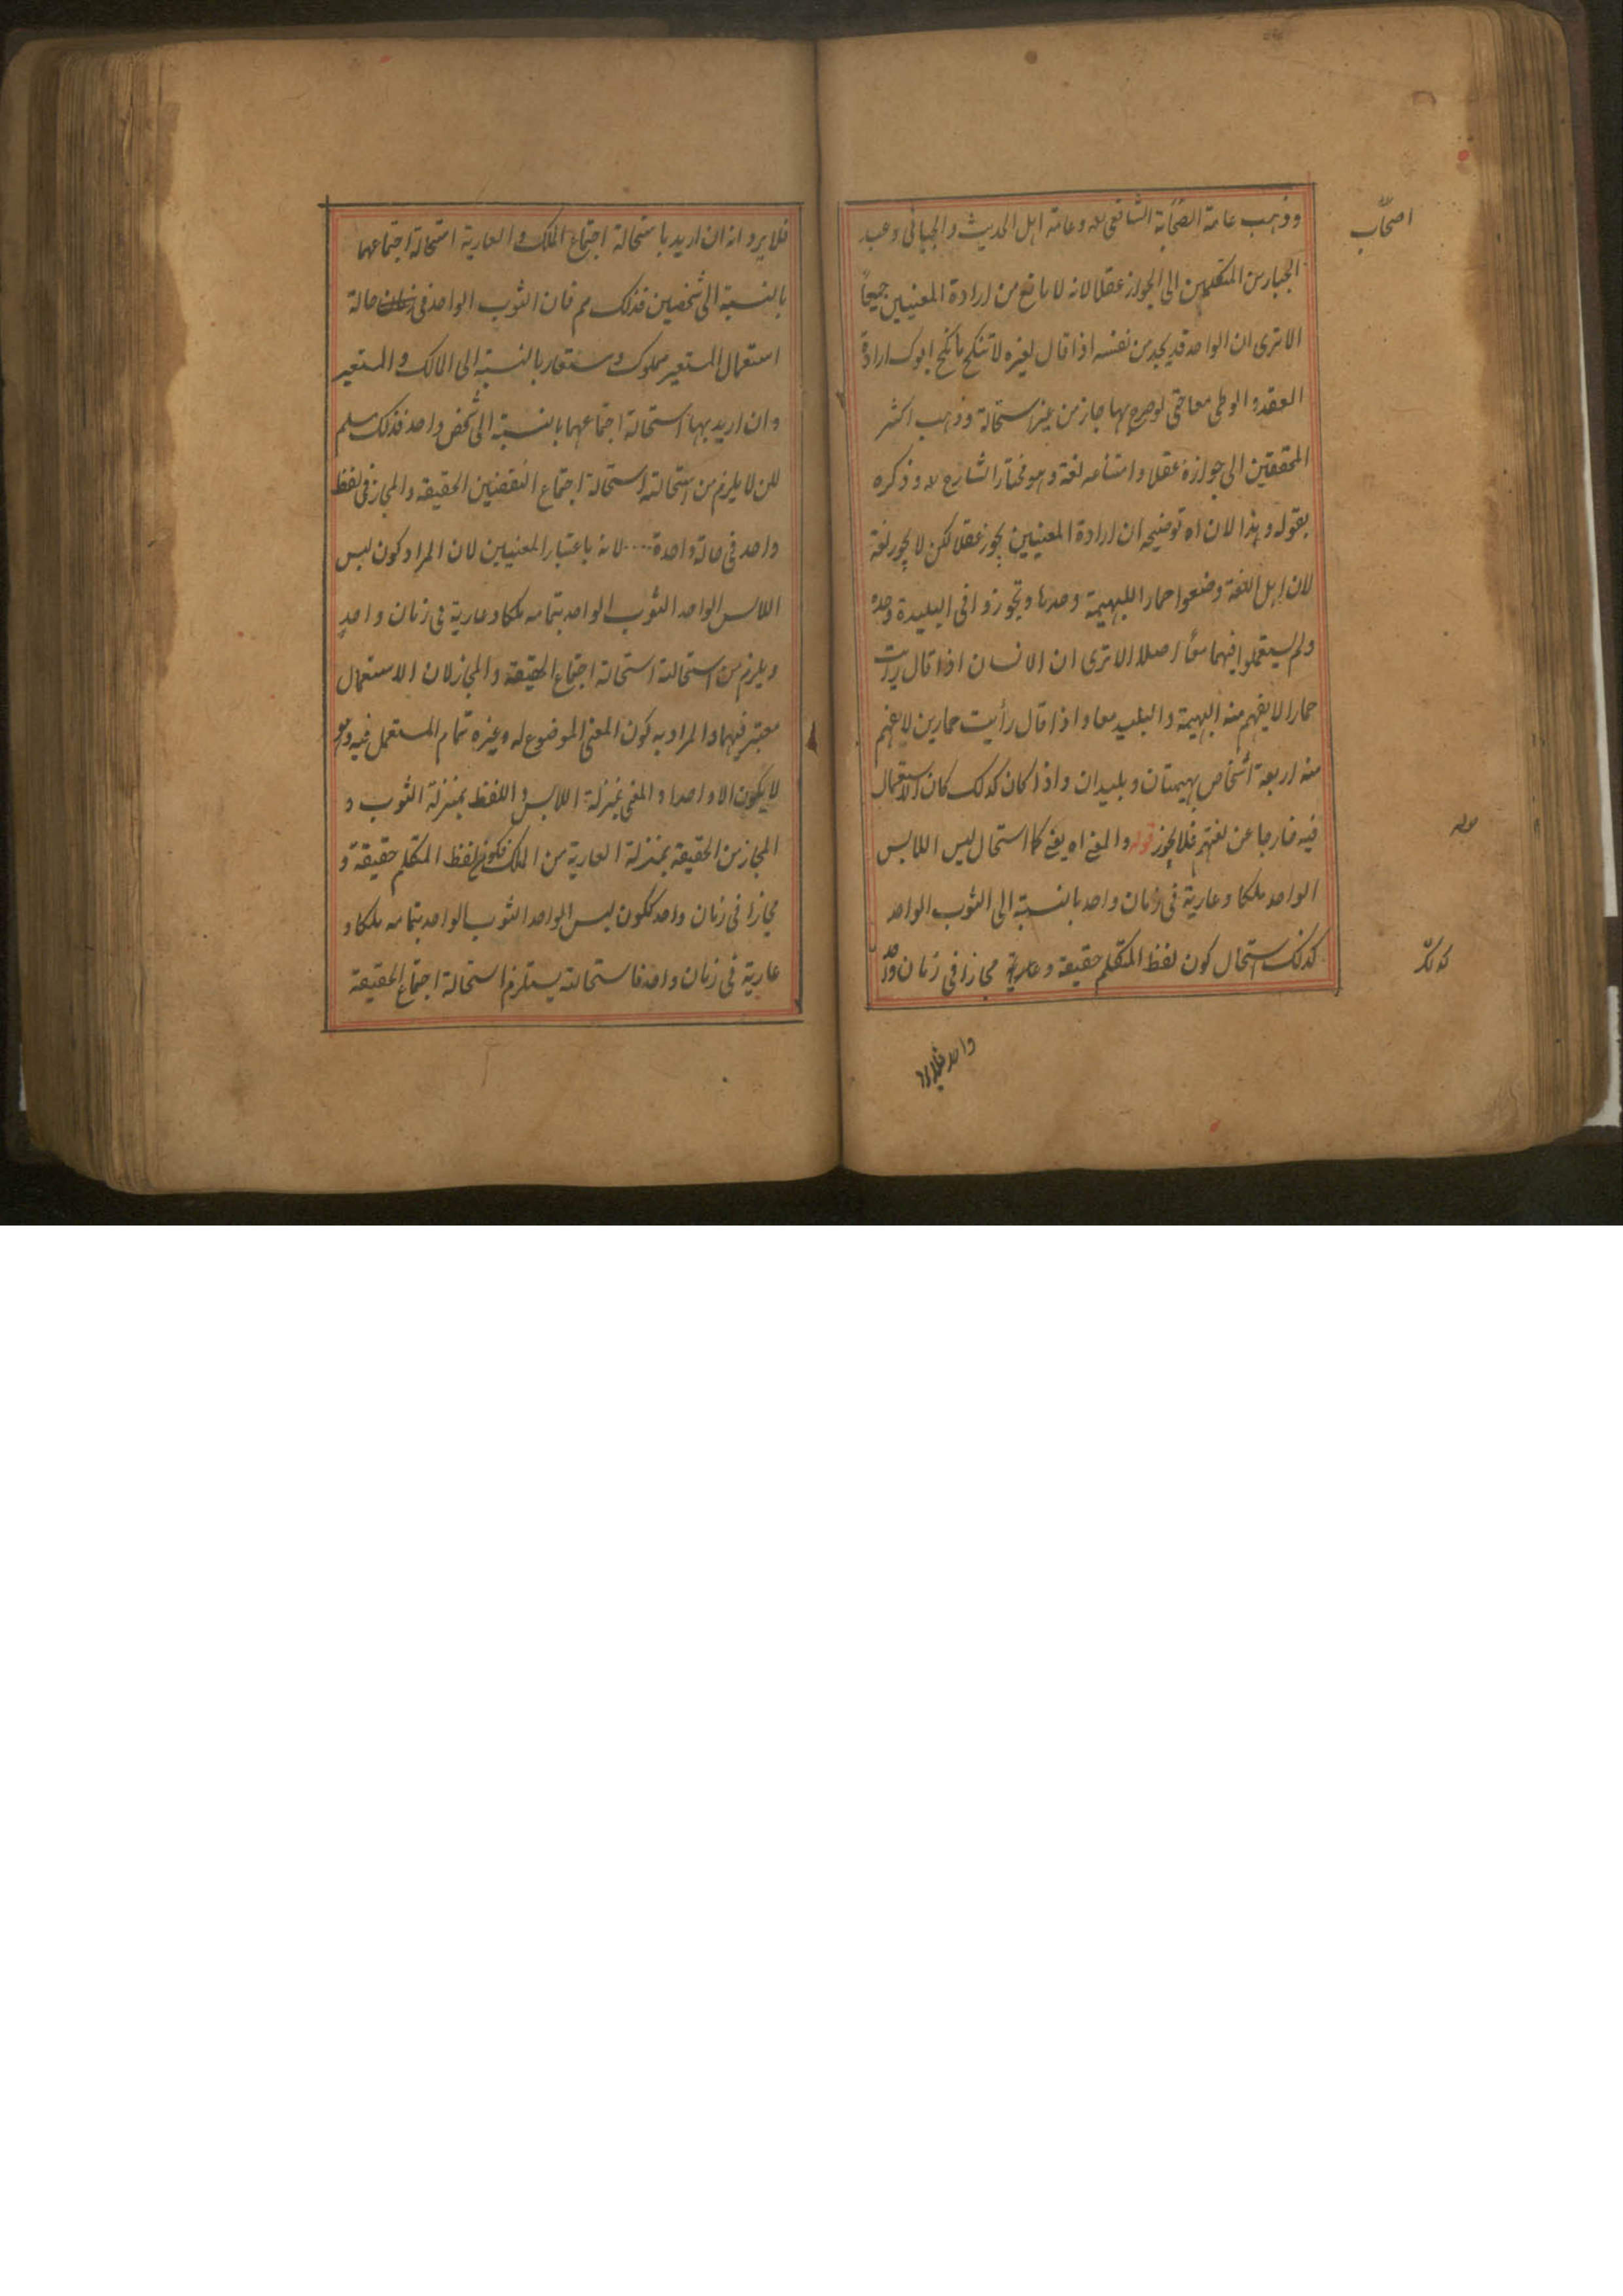 وذهب عامة الصحابة الشافعي رحمه وعامة اهل الحديث والجبائي وعبد
اصحاب
الجبار من المتكلمين الى الجواز عقلا لانه لا مانع من ارادة المعنيين جميعا
الا ترى ان الواحد قد يجد من نفسه اذا قال لغيره لا تنكح ما نكح ابوك ارادة
العقد والوطى معا حتى لو صرح بها جاز من غير استحالة وذهب اكثر
المحققين الى جوازه عقلا وامتناعه لغة وهو مختار الشارح وذكره
بقوله وهذا لان اه توضيحه ان ارادة المعنيين يجوز عقلا لكن لا يجوز لغة
لان اهل اللغة وضعوا حمارا للبهيمة وحدها وتجوزوا في البليدة وحده
ولم يستعملوا فيهما معا اصلا الا ترى ان الانسان اذا قال رايت
حمارا لا يفهم منه البهيمة والبليد معا واذا قال رأيت حمارين لا يفهم
منه اربعة اشخاص بهيمتان وبليدان واذا كان كذلك كان الاستعمال
فيه خارجا عن لغتهم فلا يجوز قوله والمعنى اه يعني كما استحال لبس اللابس
قوله
الواحد ملكا وعارية في زمان واحد بالنسبة الى الثوب الواحد
كذلك استحال كون لفظ المتكلم حقيقة وعارية مجازا في زمان واحد
كذلك
واحد فلا يرد
فلا يرد انه ان اريد باستحالة اجتماع الملك والعارية استحالة اجتماعهما
بالنسبة الى شخصين فذلك مم فان الثوب الواحد في زمان حالة
استعمال المستعير مملوك ومستعار بالنسبة الى المالك والمستعير
وان اريد بها استحالة اجتماعهما بالنسبة الى شخص واحد فذلك مسلم
لكن لا يلزم من استحالته استحالة اجتماع النقضين الحقيقة والمجاز في لفظ
واحد في حالة واحدة .... لانه باعتبار المعنيين لان المراد كون لبس
اللابس الواحد الثوب الواحد بتمامه ملكا وعارية في زمان واحد
ويلزم من استحالته استحالة اجتماع الحقيقة والمجاز لان الاستعمال
معتبر فيهما والمراد به كون المعنى الموضوع له وغيره تمام المستعمل فيه وهو
لا يكون الا واحدا والمعنى بمنزلة اللابس واللفظ بمنزلة الثوب و
المجاز من الحقيقة بمنزلة العارية من الملك فكون لفظ المتكلم حقيقة و
مجازا في زمان واحد ككون لبس الواحد الثوب الواحد بتمامه ملكا و
عارية في زمان واحد فاستحالته يستلزم استحالة اجتماع الحقيقة